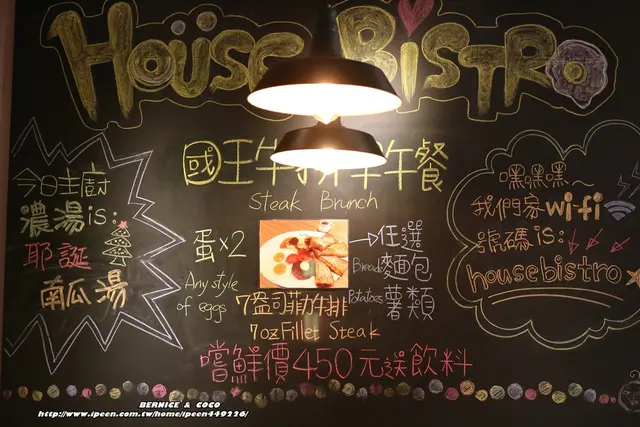 House Bistro
國王牛排早午餐
Steak Brunch
今日主廚
濃湯is:
耶誕
南瓜湯
蛋×2
Any style
of eggs
任選
Breads 麵包
Potatoes 薯類
7盎司菲力牛排
7oz Fillet Steak
嚐鮮價450元誤飲料
嘿嘿嘿~
我們家wifi
號碼is:
housebistro
BERNICE & COCO
http://www.ipeen.com.tw/home/ipeen449226/